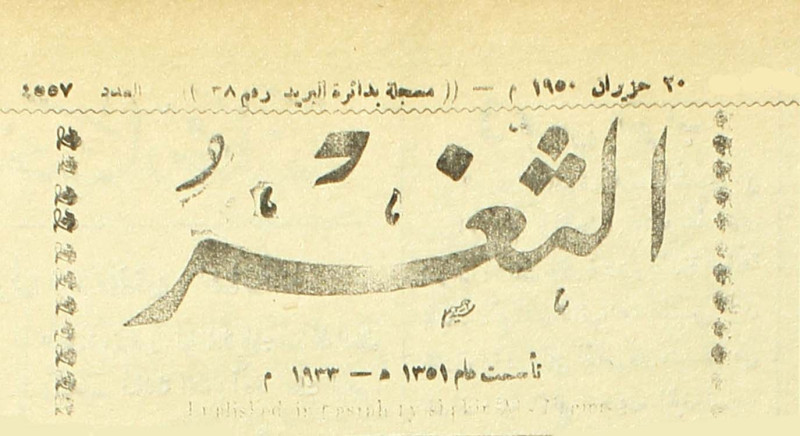 ٢٠ حزيران ١٩٥٠ م — (( مسجلة بدائرة البريد رقم ٣٨ )) العدد ٤٥٥٧
الثغر
تأسست عام ١٣٥١ هـ — ١٩٣٣ م
Published in